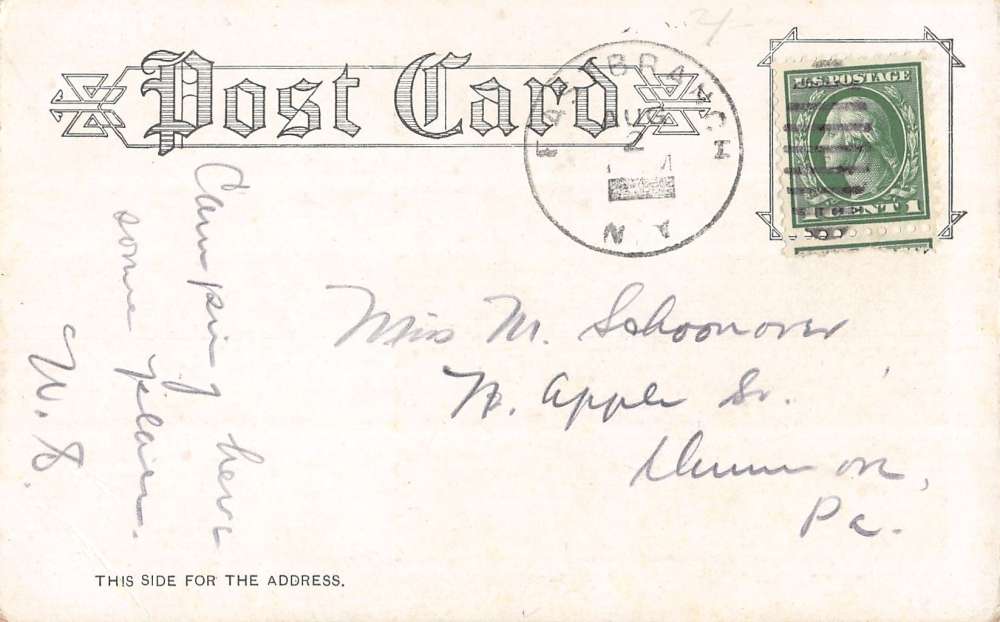 Post Card
BRANCH
AUG
2
U.S. POSTAGE
CENT 1
Camping here
some place.
W. S.
Miss M. Schoonover
N. Apple St.
Dunmore,
Pa.
THIS SIDE FOR THE ADDRESS.